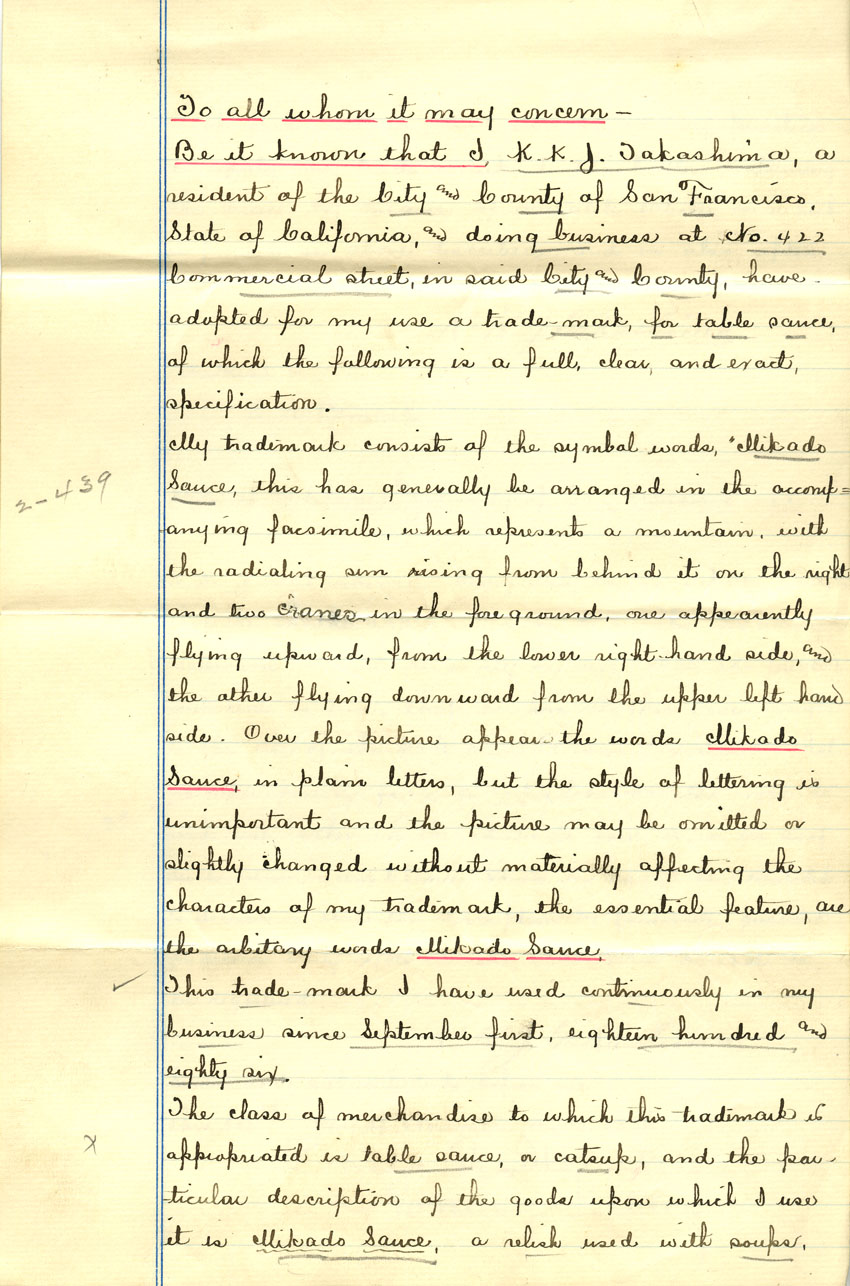 To all whom it may concern —
Be it known that I, K. K. J. Takashima, a
resident of the City and County of San Francisco,
State of California, and doing business at No. 422
Commercial street, in said City and County, have
adopted for my use a trade-mark, for table sauce,
of which the following is a full, clear, and exact,
specification.
My trademark consists of the symbal words, "Mikado
Sauce, this has generally be arranged in the accomp=
anying facsimile, which represents a mountain, with
the radiating sun rising from behind it on the right
and two cranes in the foreground, one appearently
flying upward, from the lower right-hand side, and
the other flying downward from the upper left hand
side. Over the picture appear the words Mikado
Sauce, in plain letters, but the style of lettering is
unimportant and the picture may be omitted or
slightly changed without materially affecting the
characters of my trademark, the essential feature, are
the arbitary words Mikado Sauce.
This trade-mark I have used continuously in my
business since September first, eighteen hundred and
eighty six.
The class of merchandise to which this trademark is
appropriated is table sauce, or catsup, and the par-
ticular description of the goods upon which I use
it is Mikado Sauce, a relish used with soups,
2-439
✓
x